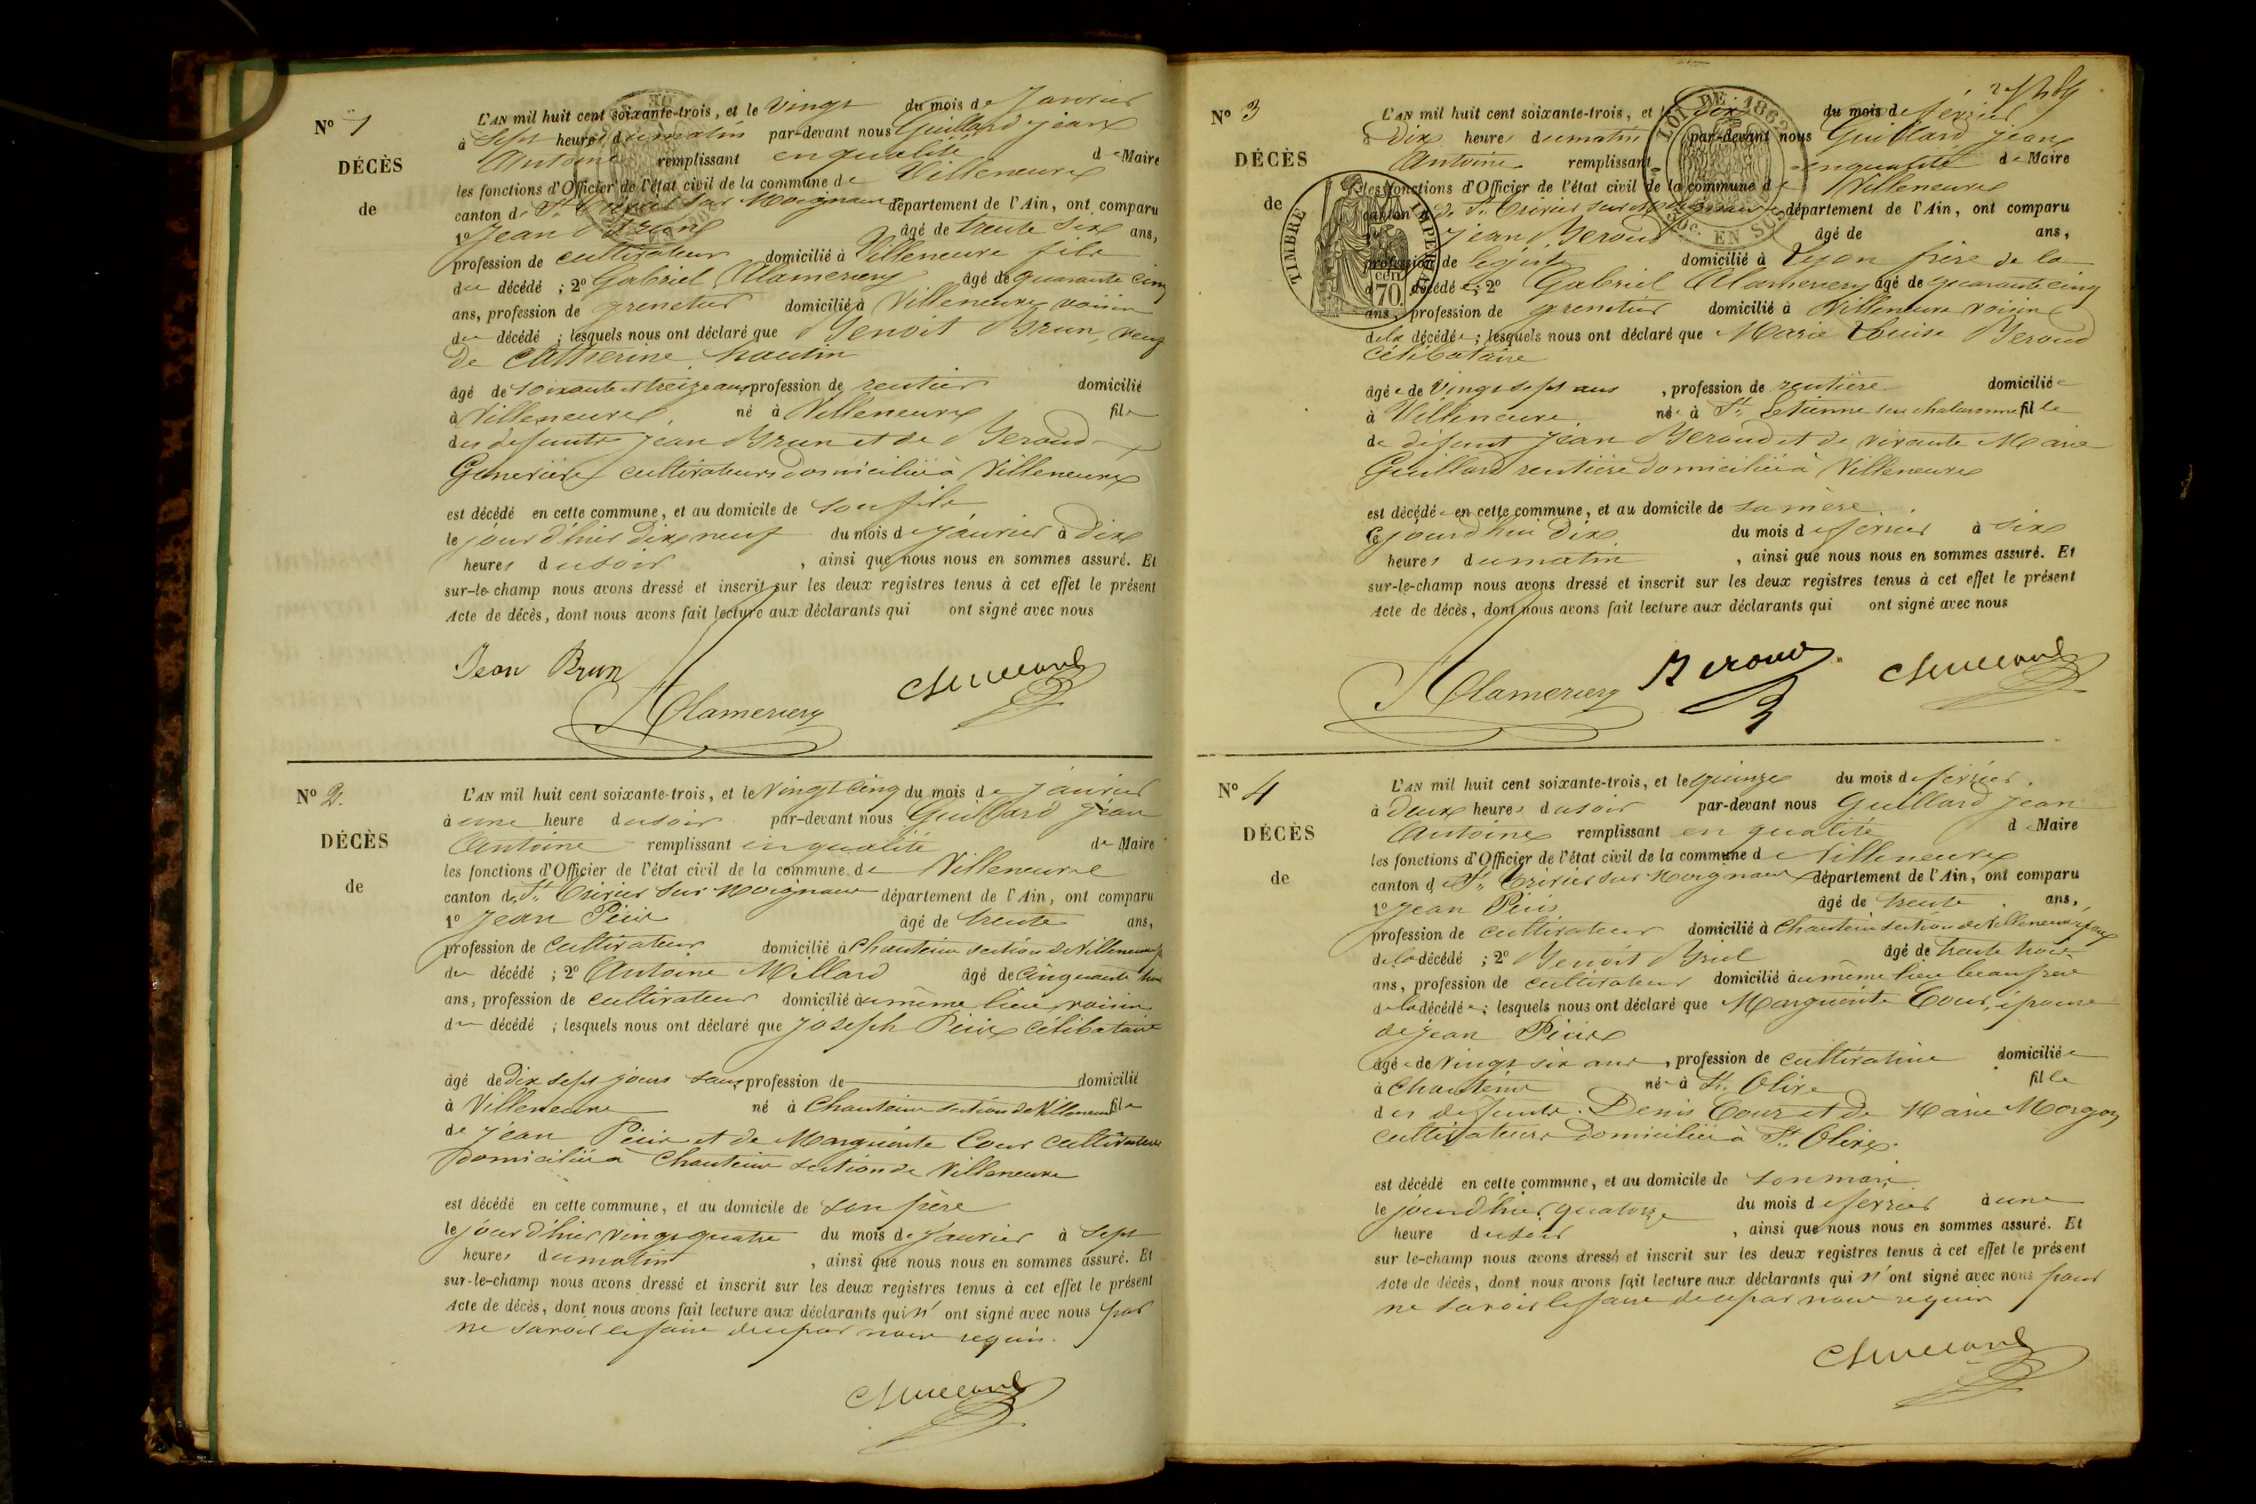 N° 1
DÉCÈS
de
L'AN mil huit cent soixante-trois, et le vingt du mois de Janvier
à Sept heures du matin par-devant nous Guillard Jean
Antoine remplissant en qualité de Maire
les fonctions d'Officier de l'état civil de la commune de Villeneuve
canton de St Trivier sur Moignans département de l'Ain, ont comparu
1° Jean Brun âgé de trente six ans,
profession de cultivateur domicilié à Villeneuve fils
du décédé ; 2° Gabriel Alamercery âgé de quarante cinq
ans, profession de domicilié à Villeneuve voisin
du décédé ; lesquels nous ont déclaré que Benoit Brun, veuf
de Catherine
âgé de soixante et treize ans profession de rentier domicilié
à Villeneuve, né à Villeneuve fils
des defunts Jean Brun et de Beroud
Geneviève cultivateurs domiciliés à Villeneuve
est décédé en cette commune, et au domicile de son fils
le jour d'hier Dix neuf du mois de janvier à Dix
heures du soir, ainsi que nous nous en sommes assuré. Et
sur-le-champ nous avons dressé et inscrit sur les deux registres tenus à cet effet le présent
Acte de décès, dont nous avons fait lecture aux déclarants qui ont signé avec nous
Jean Brun
Alamercery
Guillard
N° 2.
DÉCÈS
de
L'AN mil huit cent soixante-trois, et le vingt cinq du mois de Janvier
à une heure du soir par-devant nous Guillard Jean
Antoine remplissant en qualité de Maire
les fonctions d'Officier de l'état civil de la commune de Villeneuve
canton de St Trivier sur Moignans département de l'Ain, ont comparu
1° Jean âgé de trente ans,
profession de cultivateur domicilié à Chanteins section de Villeneuve
du décédé ; 2° Antoine Millard âgé de cinquante
ans, profession de cultivateur domicilié au même lieu, voisin
du décédé ; lesquels nous ont déclaré que Joseph célibataire
âgé de dix sept jours sans profession de domicilié
à Villeneuve né à Chanteins section de Villeneuve fils
de Jean et de Marguerite Cour cultivateurs
domiciliés à Chanteins section de Villeneuve
est décédé en cette commune, et au domicile de son père
le jour d'hier vingt quatre du mois de janvier à Sept
heures du matin, ainsi que nous nous en sommes assuré. Et
sur-le-champ nous avons dressé et inscrit sur les deux registres tenus à cet effet le présent
Acte de décès, dont nous avons fait lecture aux déclarants qui n'ont signé avec nous pour
ne savoir le faire de ce par nous requis.
Guillard
N° 3
DÉCÈS
de
LOI DE 1862
SOC. EN SUS
TIMBRE IMPERIAL
70 cen
L'AN mil huit cent soixante-trois, et le dix du mois de février
à Dix heures du matin par-devant nous Guillard Jean
Antoine remplissant en qualité de Maire
les fonctions d'Officier de l'état civil de la commune de Villeneuve
canton de St Trivier sur Moignans département de l'Ain, ont comparu
Jean Beroud âgé de ans,
profession de domicilié à Lyon frère de la
décédée ; 2° Gabriel Alamercery âgé de quarante cinq
ans, profession de domicilié à Villeneuve voisin
de la décédée ; lesquels nous ont déclaré que Marie Louise Beroud
célibataire
âgée de Vingt sept ans, profession de rentière domiciliée
à Villeneuve née à St Etienne sur chalaronne fille
de défunt Jean Beroud et de vivante Marie
Guillard rentière domiciliée à Villeneuve
est décédée en cette commune, et au domicile de sa mère
ce jourd'hui Dix du mois de fevrier à six
heures du matin, ainsi que nous nous en sommes assuré. Et
sur-le-champ nous avons dressé et inscrit sur les deux registres tenus à cet effet le présent
Acte de décès, dont nous avons fait lecture aux déclarants qui ont signé avec nous
Alamercery
Beroud
Guillard
N° 4
DÉCÈS
de
L'AN mil huit cent soixante-trois, et le quinze du mois de février.
à deux heures du soir par-devant nous Guillard Jean
Antoine remplissant en qualité de Maire
les fonctions d'Officier de l'état civil de la commune de Villeneuve
canton de St Trivier sur Moignans département de l'Ain, ont comparu
1° Jean âgé de trente ans,
profession de cultivateur domicilié à Chanteins section de Villeneuve époux
de la décédé ; 2° Benoit Briel âgé de trente trois
ans, profession de cultivateur domicilié au même lieu beau frère
de la décédée ; lesquels nous ont déclaré que Marguerite Cour, épouse
de Jean
âgée de vingt six ans, profession de cultivatrice domiciliée
à Chanteins née à St. Olive fille
des defunts Denis Cour et de Marie Morgon
cultivateurs domiciliés à St. Olive.
est décédé en cette commune, et au domicile de son mari
le jour d'hier quatorze du mois de fevrier à une
heure du soir, ainsi que nous nous en sommes assuré. Et
sur le-champ nous avons dressé et inscrit sur les deux registres tenus à cet effet le présent
Acte de décès, dont nous avons fait lecture aux déclarants qui n'ont signé avec nous pour
ne savoir le faire de ce par nous requis
Guillard